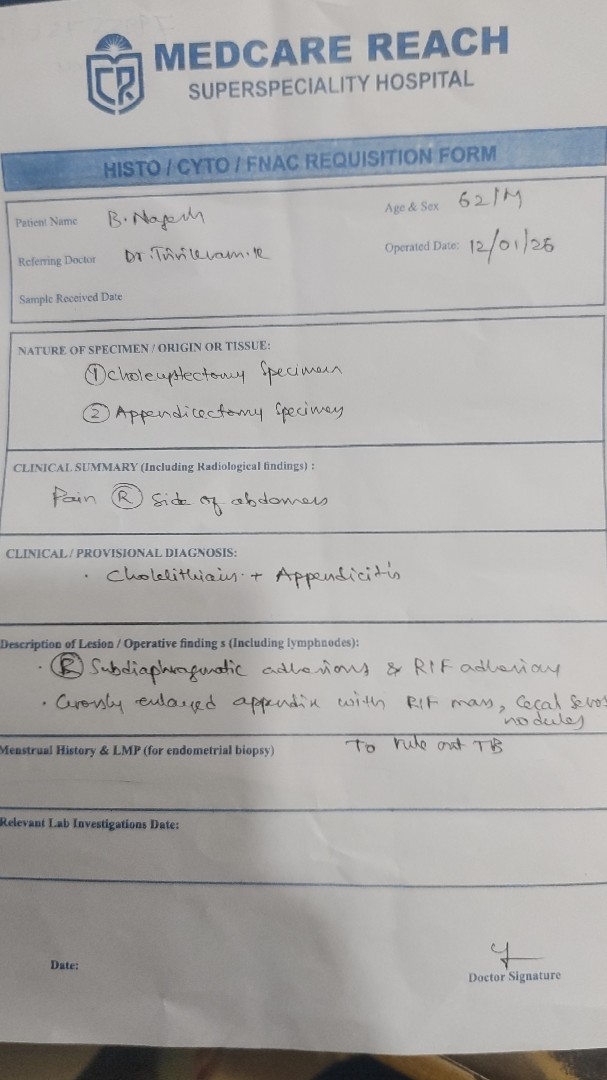 MEDCARE REACH
SUPERSPECIALITY HOSPITAL
HISTO / CYTO / FNAC REQUISITION FORM
Patient Name B. Nagesh
Age & Sex 62/M
Referring Doctor Dr.
Operated Date: 12/01/26
Sample Received Date
NATURE OF SPECIMEN / ORIGIN OR TISSUE:
① Cholecystectomy Specimen
② Appendicectomy Specimen
CLINICAL SUMMARY (Including Radiological findings) :
Pain Ⓡ Side of abdomen
CLINICAL / PROVISIONAL DIAGNOSIS:
• Cholelithiasis + Appendicitis
Description of Lesion / Operative finding s (Including lymphnodes):
• Ⓡ Subdiaphragmatic adhesions & RIF adhesions
• Grossly enlarged appendix with RIF mass, Cecal
nodules
Menstrual History & LMP (for endometrial biopsy)
To rule out TB
Relevant Lab Investigations Date:
Date:
Doctor Signature